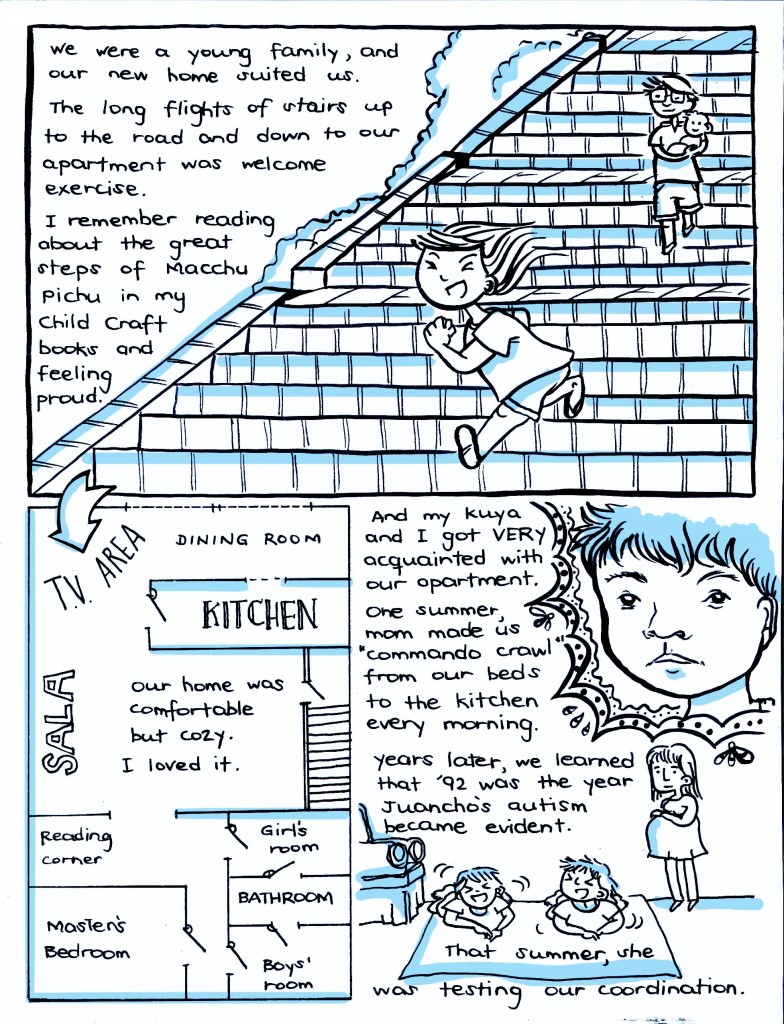 We were a young family, and
our new home suited us.
The long flights of stairs up
to the road and down to our
apartment was welcome
exercise.
I remember reading
about the great
steps of Macchu
Pichu in my
Child Craft
books and
feeling
proud.
T.V. AREA
DINING ROOM
KITCHEN
SALA
our home was
comfortable
but cozy.
I loved it.
Reading
corner
Girl's
room
BATHROOM
Master's
Bedroom
Boys'
room
And my kuya
and I got VERY
acquainted with
our apartment.
One summer,
mom made us
"commando crawl"
from our beds
to the kitchen
every morning.
years later, we learned
that '92 was the year
Juancho's autism
became evident.
That summer, she
was testing our coordination.